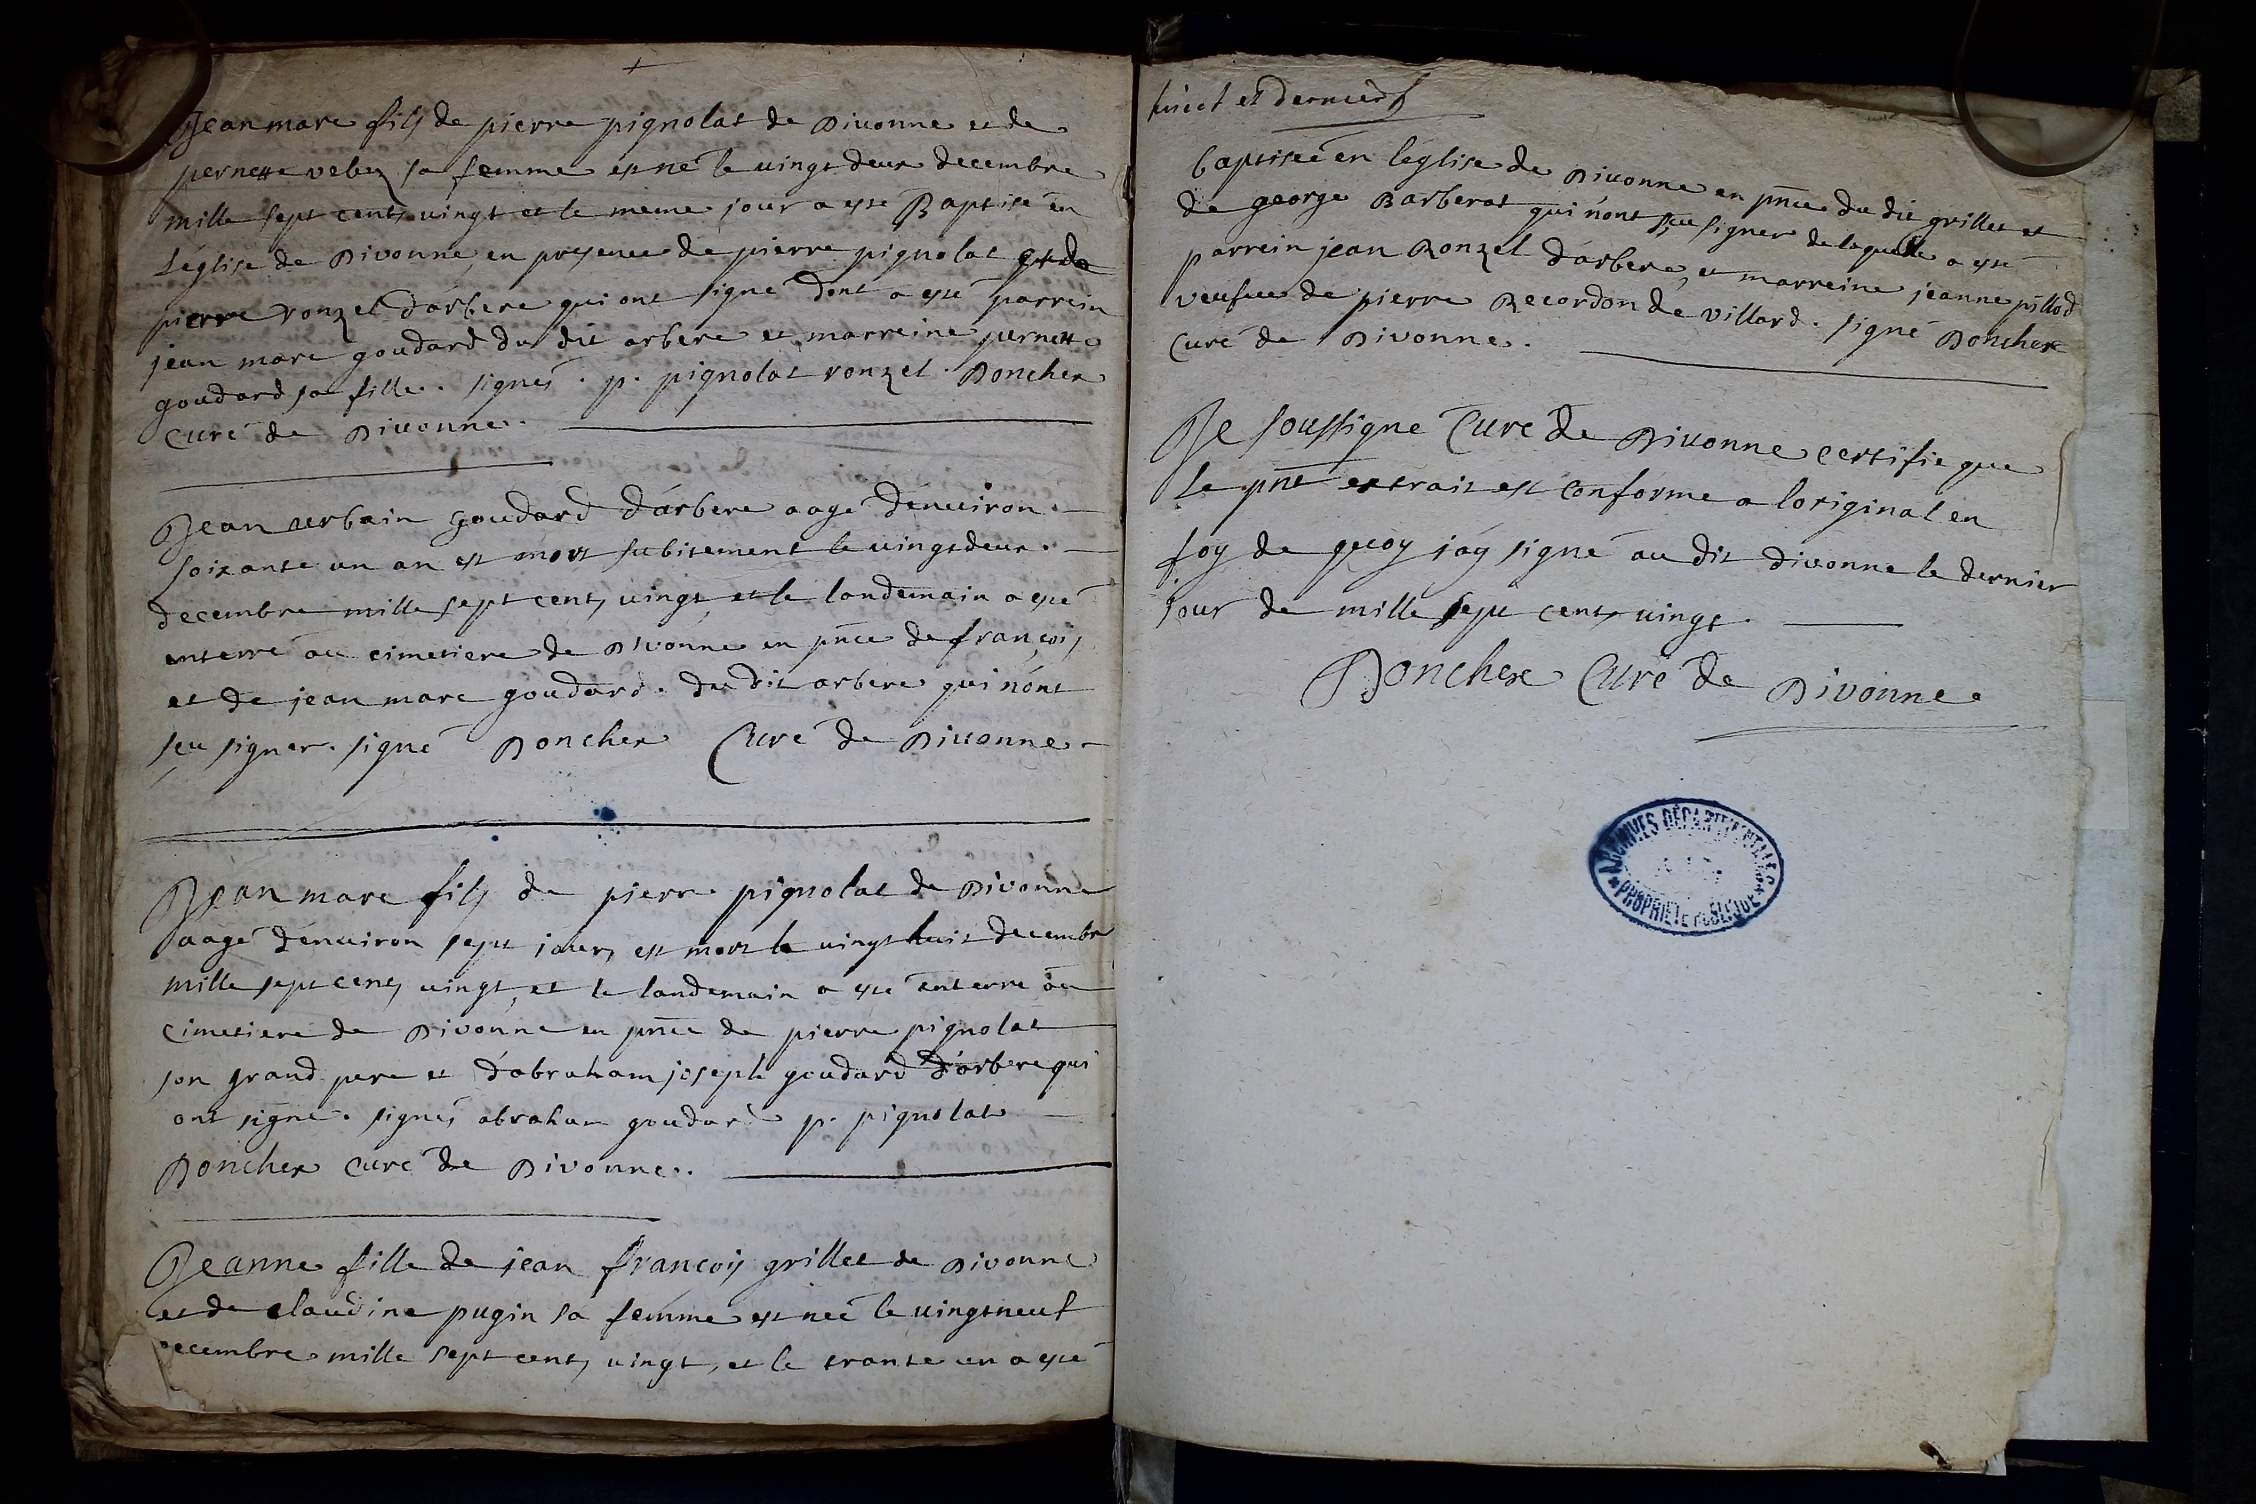 Jean marc fils de pierre pignolat de Divonne et de
pernette veley sa femme est né le vingt deux decembre
mille sept cents vingt et le meme jour a esté Baptisé en
L'église de Divonne en presence de pierre pignolat et de
pierre ronzel d'arbere qui ont signé dont a esté parrein
jean marc goudard du dit arbere et marreine pernette
goudard sa fille. signés. p. pignolat ronzel. Doncher
curé de Divonne.
Jean urbain goudard d'arbere aagé d'enuiron
soixante un an est mort subitement le uingt deux
decembre mille sept cents vingt, et le landemain a esté
enterré au cimetiere de Divonne en pñce de françois
et de jean marc goudard. du dit arbere qui n'ont
sçu signer. signé Doncher Curé de Diuonne
Jean marc fils de pierre pignolat de Divonne
aagé d'enuiron sept jours est mort le uingt huit decembre
mille sept cents uingt, et le landemain a esté enterré au
cimetiere de Divonne en pñce de pierre pignolat
son grand pere et d'abraham joseph goudard d'arbere qui
ont signé. signés abraham goudard p. pignolat
Doncher curé de Divonne.
Jeanne fille de jean françois grillet de Divonne
et de claudine pugin sa femme est neé le uingt neuf
decembre mille sept cents uingt, et le trante un a esté
huict et dernier f
baptiseé en l'église de Diuonne en pñce du dit grillet et
de george Barberat qui n'ont sçu signer de laquelle a esté
parrein jean Ronzel d'arbere, et marreine jeanne pillod
veufue de pierre Recordon de villard. signé Doncher
Curé de Divonne.
Je soussigné Curé de Diuonne certifie que
Le pñt extrait est conforme a l'original en
foy de quoy j'ay signé au dit divonne le dernier
jour de mille sept cents vingt.
Doncher Curé de Divonne
ARCHIVES DÉPARTEMENTALES
AIN
PROPRIÉTÉ PUBLIQUE